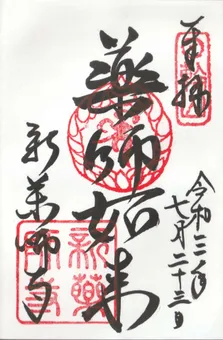 奉拝
令和三年
七月二十三日
薬師如来
新薬師寺
新藥
師寺